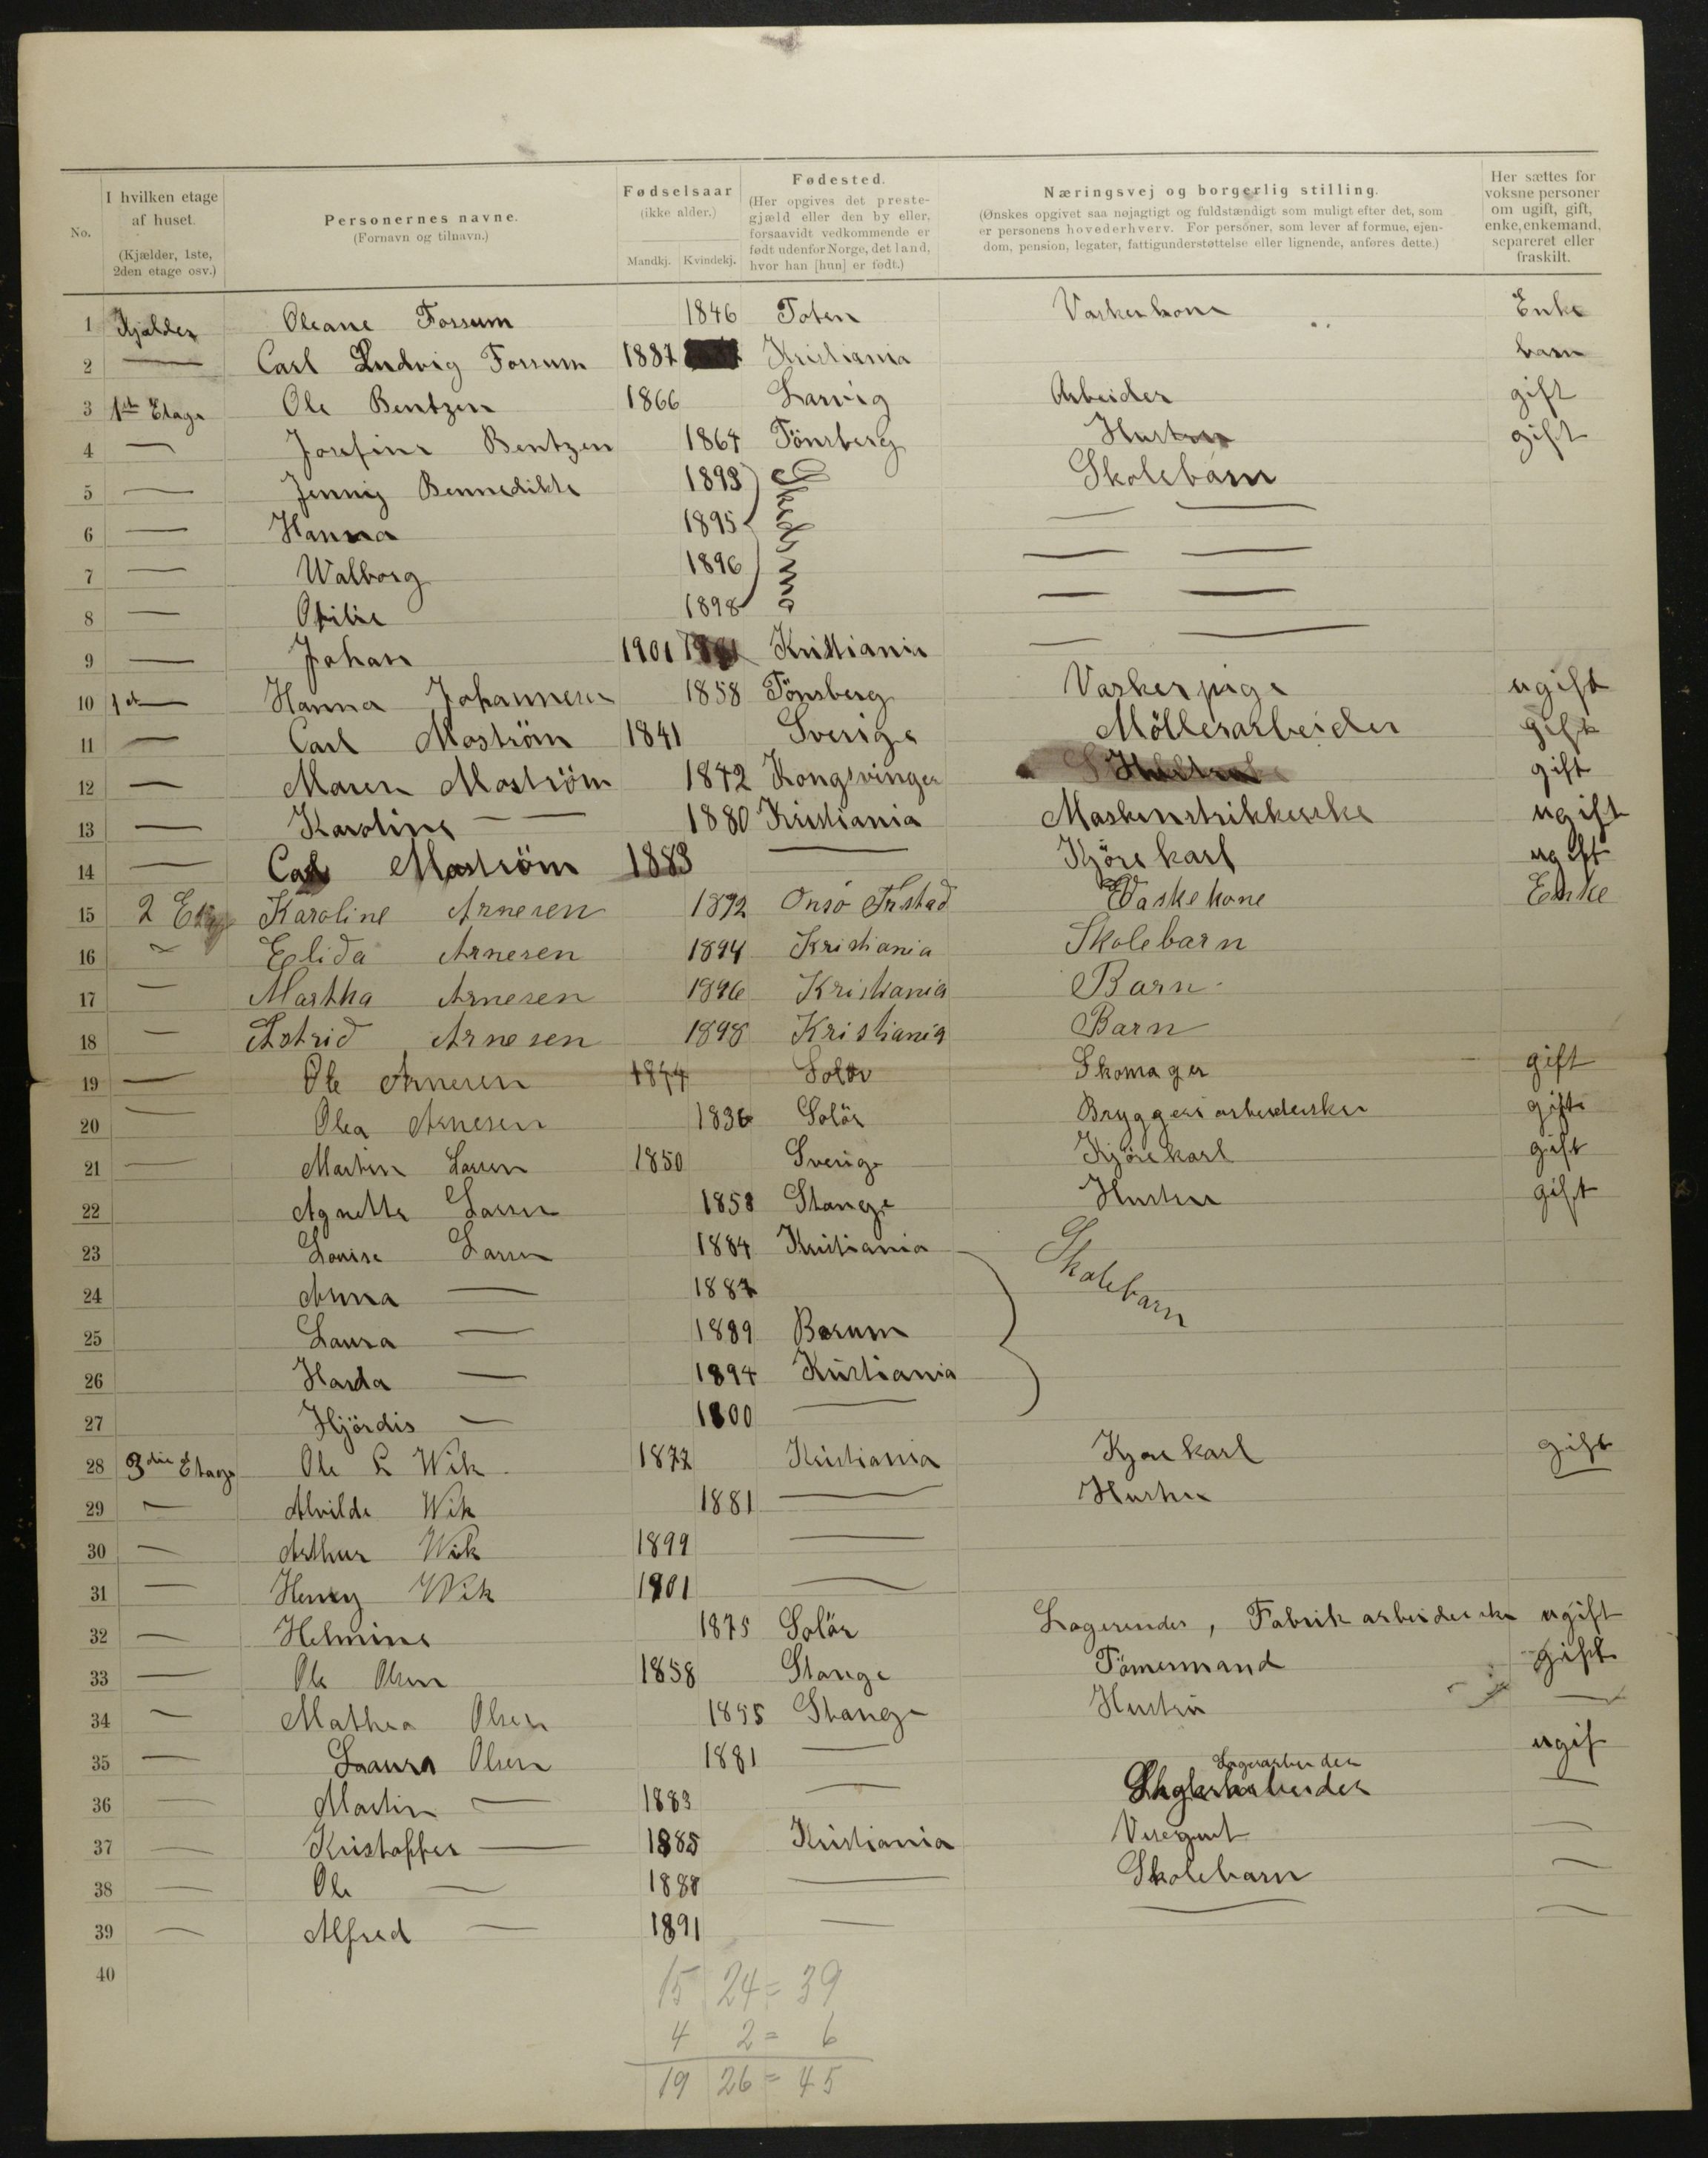 No.
I hvilken etage af huset. (Kjælder, 1ste, 2den etage osv.)
Personernes navne. (Fornavn og tilnavn.)
Fødselsaar (ikke alder.) Mandkj. Kvindekj.
Fødested. (Her opgives det prestegjæld eller den by eller, forsaavidt vedkommende er født udenfor Norge, det land, hvor han [hun] er født.)
Næringsvej og borgerlig stilling. (Ønskes opgivet saa nøjagtigt og fuldstændigt som muligt efter det, som er personens hovederhverv. For personer, som lever af formue, ejendom, pension, legater, fattigunderstøttelse eller lignende, anføres dette.)
Her sættes for voksne personer om ugift, gift, enke, enkemand, separeret eller fraskilt.
1 Kjælder Oleane Forsum 1846 Toten Vaskerkone Enke
2 — Carl Ludvig Forsum 1887 Kristiania barn
3 1ste Etage Ole Bentzen 1866 Larvig Arbeider gift
4 — Josefine Bentzen 1864 Tönsberg Hustru gift
5 — Jenny Bennedikte 1893 Skedsmo Skolebarn
6 — Hanna 1895 — —
7 — Walborg 1896 — —
8 — Otilie 1898 — —
9 — Johan 1901 Kristiania — —
10 1ste — Hanna Johannesen 1858 Tönsberg Vaskerpige ugift
11 — Carl Moström 1841 Sverige Möllerarbeider gift
12 — Maren Moström 1842 Kongsvinger gift
13 — Karoline — — 1880 Kristiania Maskinstrikkerske ugift
14 — Carl Moström 1883 — Kjörekarl ugift
15 2 Etag Karoline Arnesen 1872 Onsö Frstad Vaskekone Enke
16 — Elida Arnesen 1894 Kristiania Skolebarn
17 — Martha Arnesen 1896 Kristiania Barn
18 — Astrid Arnesen 1898 Kristiania Barn
19 — Ole Arnesen 1844 Solör Skomager gift
20 — Olea Arnesen 1836 Solör Bryggeriarbeiderske gift
21 — Martin Larsen 1850 Sverige Kjörekarl gift
22 Agnette Larsen 1858 Stange Hustru gift
23 Louise Larsen 1884 Kristiania Skolebarn
24 Anna — 1887
25 Laura — 1889 Bærum
26 Harda — 1894 Kristiania
27 Hjördis — 1900 —
28 3die Etage Ole L Wik 1877 Kristiania Kjørekarl gift
29 — Alvilde Wik 1881 — Hustru
30 — Arthur Wik 1899 —
31 — Henry Wik 1901 —
32 — Helmine 1875 Solör Logerende, Fabrikarbeiderske ugift
33 — Ole Olsen 1858 Stange Tömermand gift
34 — Mathea Olsen 1855 Stange Hustru —
35 — Laura Olsen 1881 — ugif
36 — Martin — 1883 — Lagerarbeider —
37 — Kristoffer — 1885 Kristiania Visergut —
38 — Ole — 1888 — Skolebarn —
39 — Alfred — 1891 — — —
40
15 24 = 39
4 2 = 6
19 26 = 45